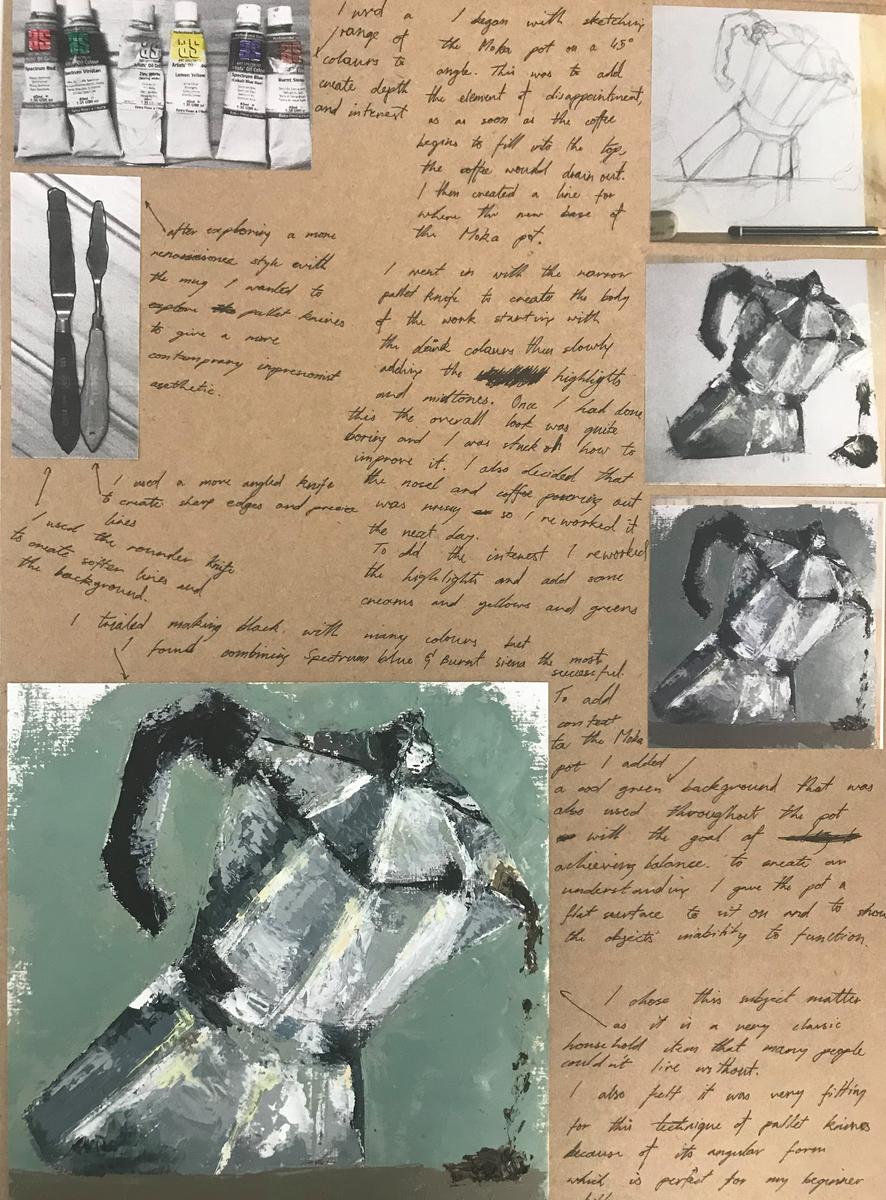 Spectrum Red
Spectrum Viridian
Artists' Oil Colour
Zinc White
Lemon Yellow
Spectrum Blue
Burnt Siena
I used a
range of
colours to
create depth
and interest
I began with sketching
the Moka pot on a 45°
angle. This was to add
the element of disappointment,
as as soon as the coffee
begins to fill into the top,
the coffee would drain out.
I then created a line for
where the new base of
the Moka pot.
after exploring a more
renaissance style with
the mug I wanted to
explore the pallet knives
to give a more
contemprary impresionist
aesthetic.
I went in with the narrow
pallet knife to create the body
of the work starting with
the dark colours then slowly
adding the highlights
and midtones. Once I had done
this the overall look was quite
boring and I was stuck on how to
improve it. I also decided that
the nosel and coffee pouring out
was messy so I reworked it
the next day.
To add the interest I reworked
the highlights and add some
creams and yellows and greens
I used a more angled knife
to create sharp edges and precise
lines
I used the rounder knife
to create softer lines and
the background.
I trialed making black with many colours but
I found combining Spectrum blue & Burnt siena the most
successful.
To add
context
to the Moka
pot I added
a green background that was
also used throughout the pot
with the goal of
achieving balance. to create an
understanding I gave the pot a
flat surface to sit on and to show
the objects inability to function.
I chose this subject matter
as it is a very classic
household item that many people
couldn't live without.
I also felt it was very fitting
for this technique of pallet knives
because of its angular form
which is perfect for my beginner